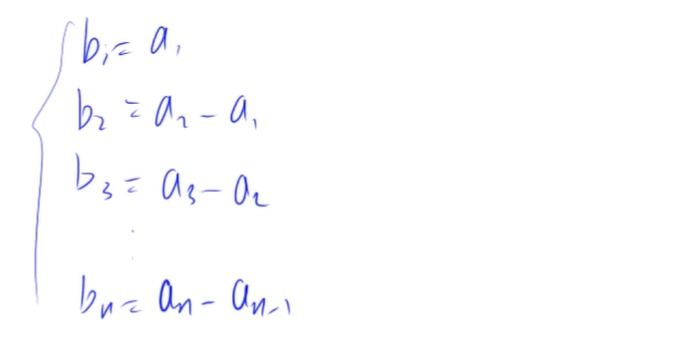 b₁ = a₁
b₂ = a₂ - a₁
b₃ = a₃ - a₂
⋮
bₙ = aₙ - aₙ₋₁